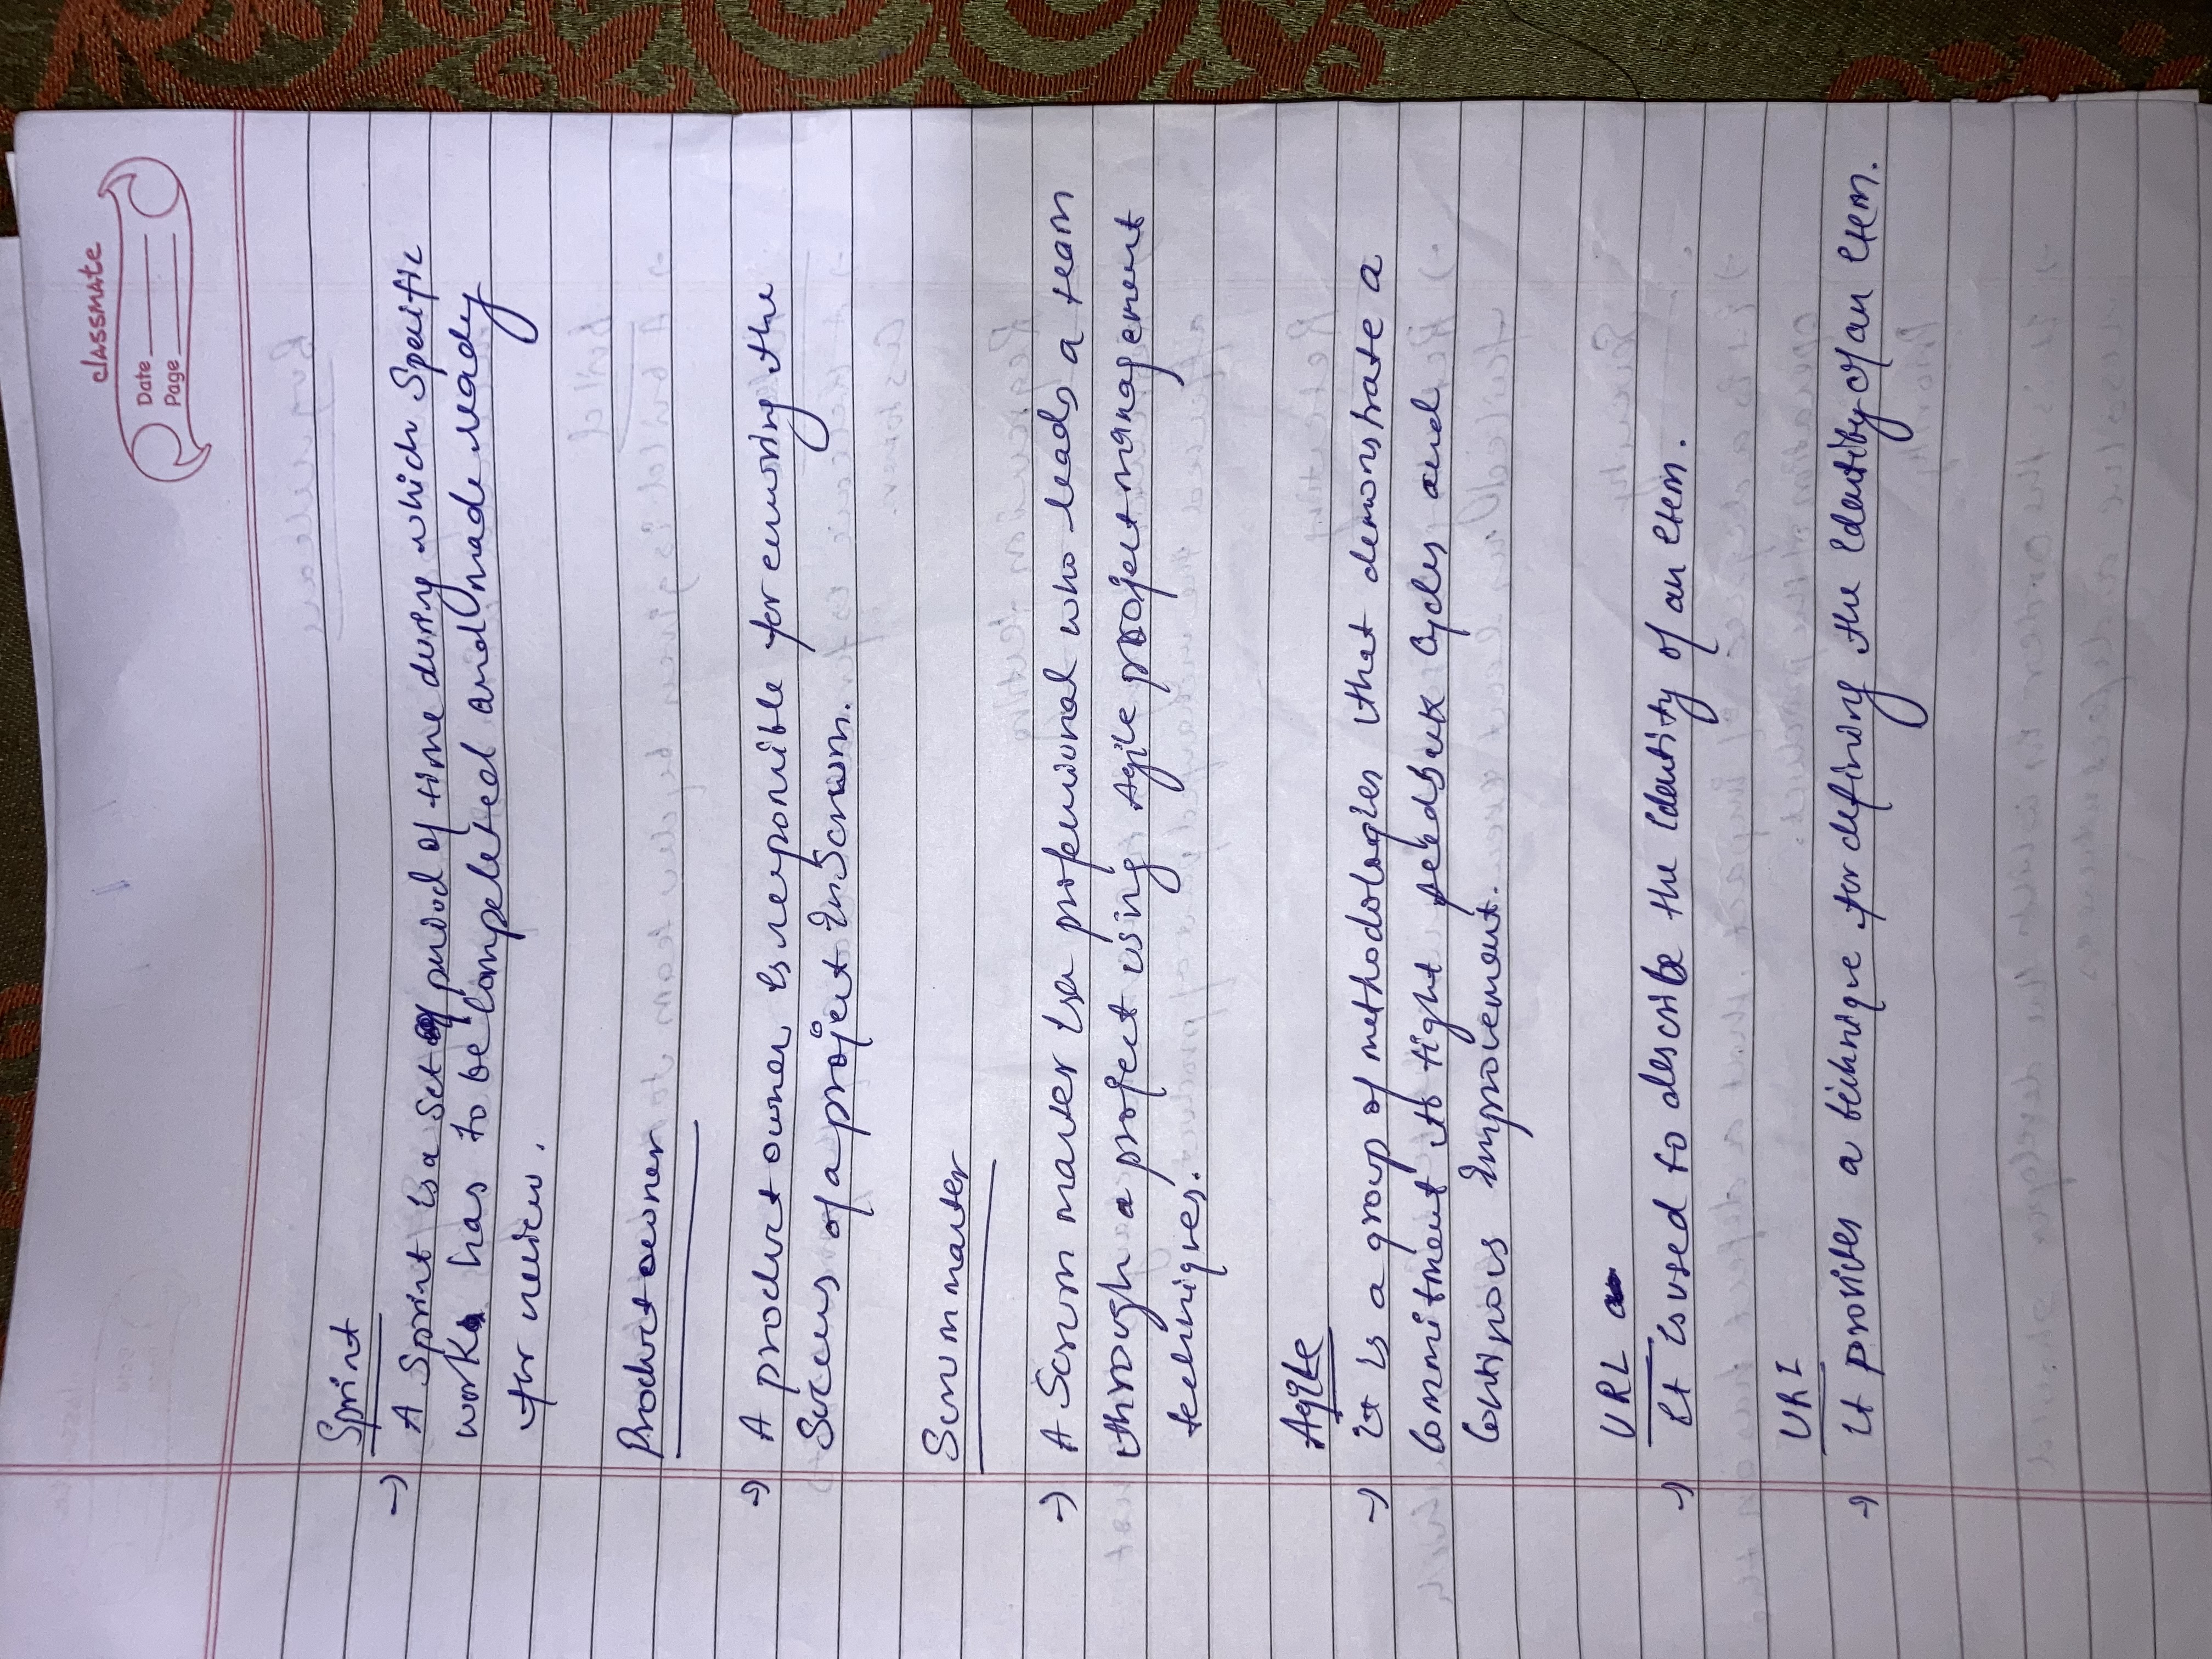 classmate
Date
Page
Sprint
→ A Sprint is a set of period of time during which Specific
work has to be compeleted and made ready
for review.
Product owner
→ A product owner is responsible for ensuring the
Success of a project in Scrum.
Scrum master
→ A Scrum master is a professional who leads a team
through a project using Agile project management
techniques.
Agile
→ it is a group of methodologies that demonstrate a
Commitment to tight feedback Cycles and
Continous Improvement.
URL
→ it is used to describe the identity of an item.
URI
→ it provides a technique for defining the identity of an item.